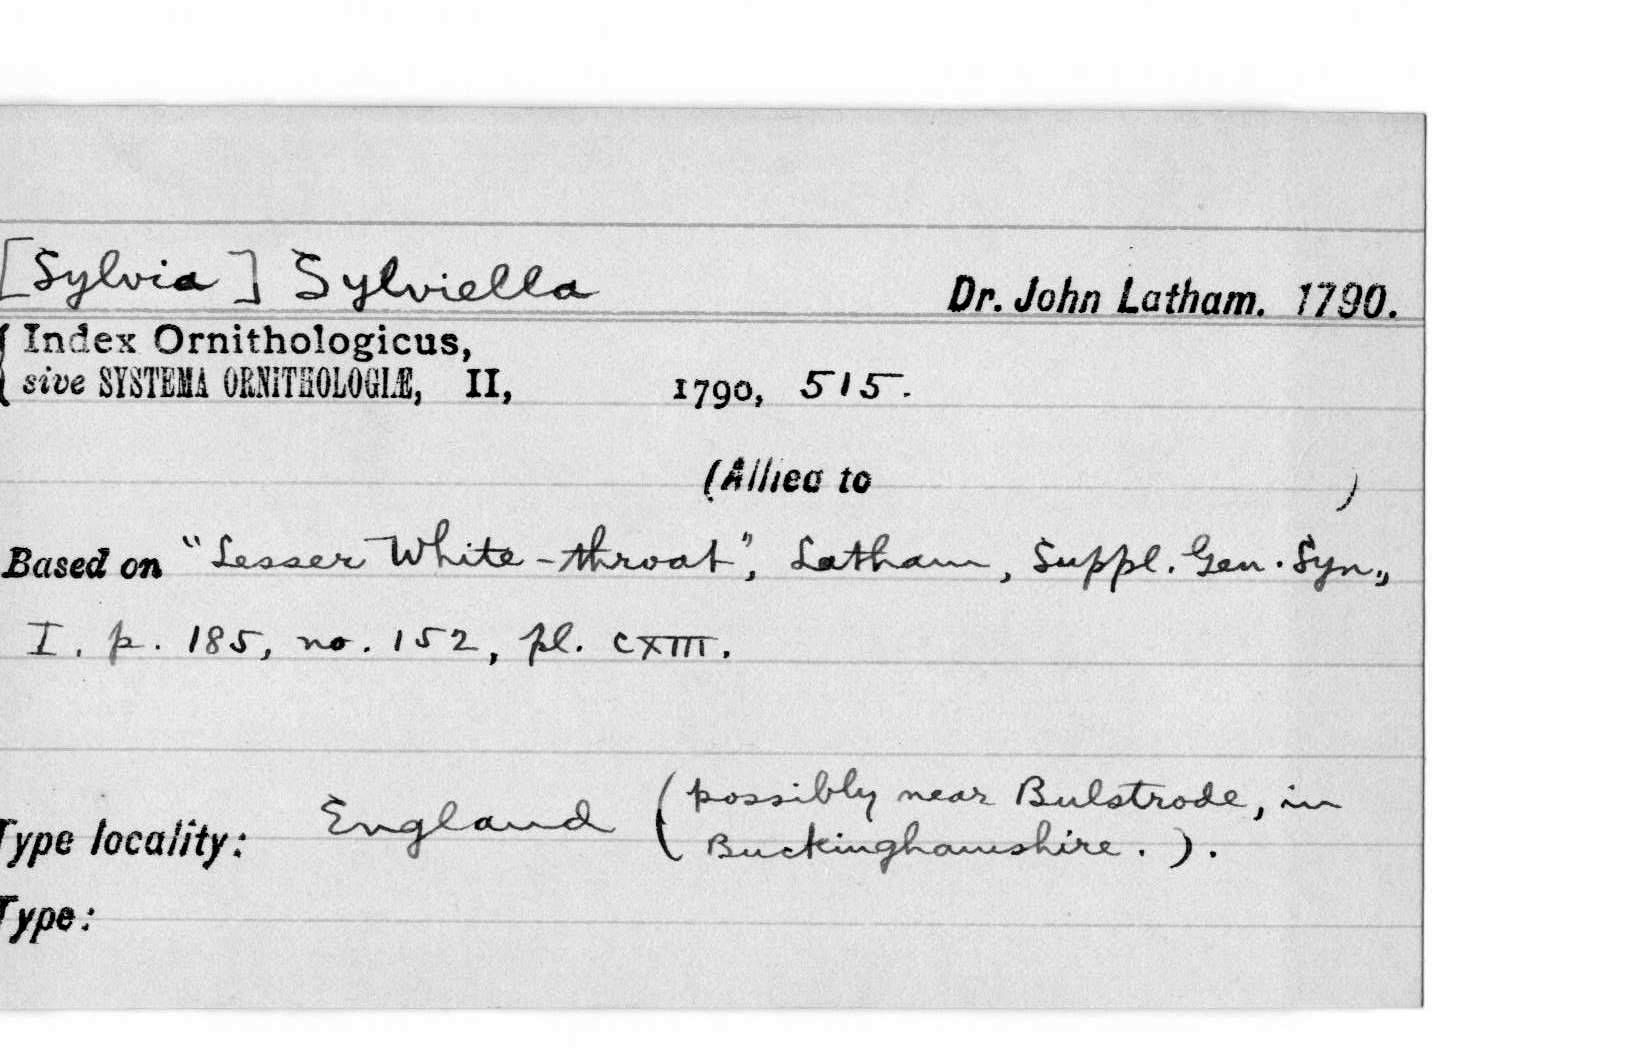 [Sylvia] Sylviella Dr. John Latham. 1790.
Index Ornithologicus,
sive SYSTEMA ORNITHOLOGIÆ, II, 1790, 515.
(Allied to )
Based on "Lesser White-throat", Latham, Suppl. Gen. Syn.,
I. p. 185, no. 152, pl. CXIII.
Type locality: England (possibly near Bulstrode, in
Buckinghamshire.).
Type: